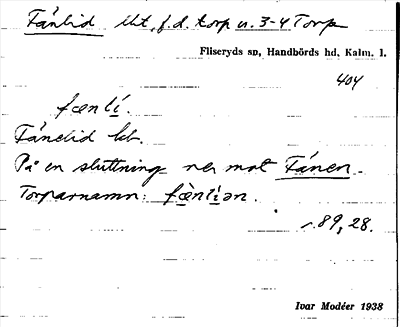 Fånlid lht, f.d. torp u. 3-4 Torp
Fliseryds sn, Handbörds hd, Kalm. l.
404
fænlí.
Fånelid kb.
På en sluttning ner mot Fånen.
Torparnamn: fæ̀nlíən.
r. 89, 28.
Ivar Modéer 1938